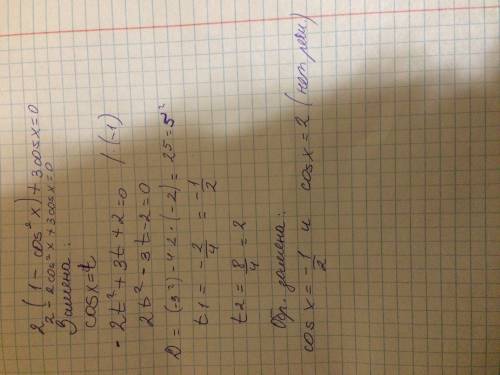 2(1 - cos²x) + 3cosx = 0
2 - 2cos²x + 3cosx = 0
Замена:
cosx = t
-2t² + 3t + 2 = 0 / (-1)
2t² - 3t - 2 = 0
D = (-3²) - 4·2·(-2) = 25 = 5²
t1 = -2/4 = -1/2
t2 = 8/4 = 2
Обр. замена:
cosx = -1/2 и cosx = 2 (нет реш.)